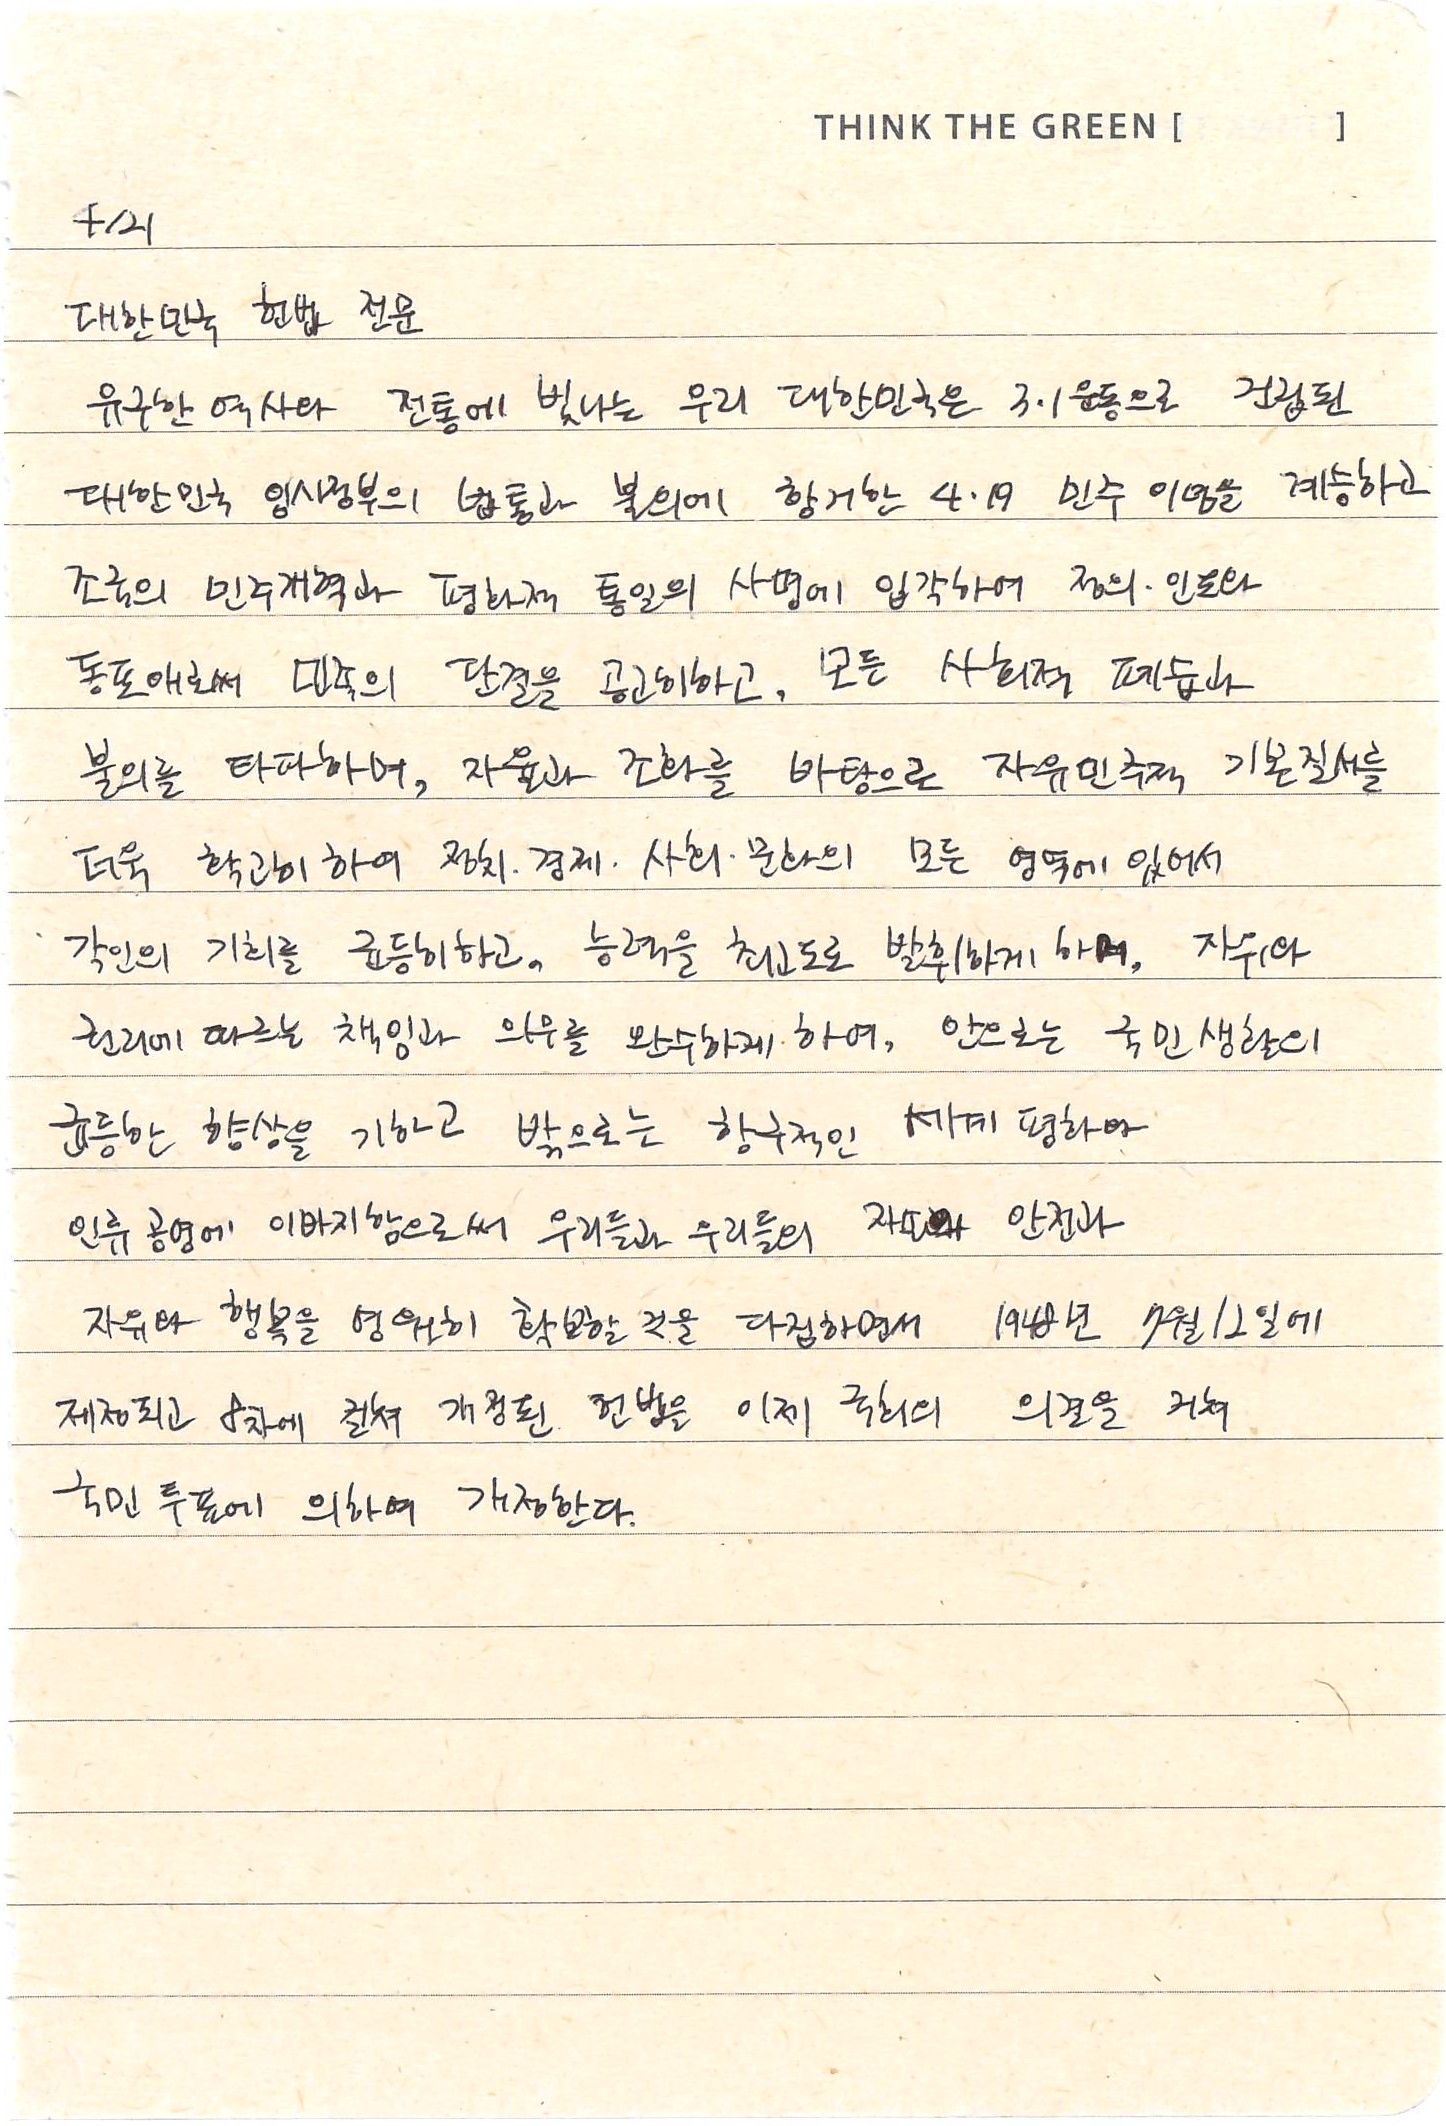 THINK THE GREEN [ ]
4/21
대한민국 헌법 전문
유구한 역사와 전통에 빛나는 우리 대한민국은 3.1운동으로 건립된
대한민국 임시정부의 법통과 불의에 항거한 4.19 민주 이념을 계승하고
조국의 민주개혁과 평화적 통일의 사명에 입각하여 정의·인도와
동포애로써 민족의 단결을 공고히하고, 모든 사회적 폐습과
불의를 타파하며, 자율과 조화를 바탕으로 자유민주적 기본질서를
더욱 확고히 하여 정치·경제·사회·문화의 모든 영역에 있어서
각인의 기회를 균등히하고, 능력을 최고도로 발휘하게 하며, 자유와
권리에 따르는 책임과 의무를 완수하게 하여, 안으로는 국민생활의
균등한 향상을 기하고 밖으로는 항구적인 세계평화와
인류공영에 이바지함으로써 우리들과 우리들의 안전과
자유와 행복을 영원히 확보할 것을 다짐하면서 1948년 7월 12일에
제정되고 8차에 걸쳐 개정된 헌법을 이제 국회의 의결을 거쳐
국민투표에 의하여 개정한다.